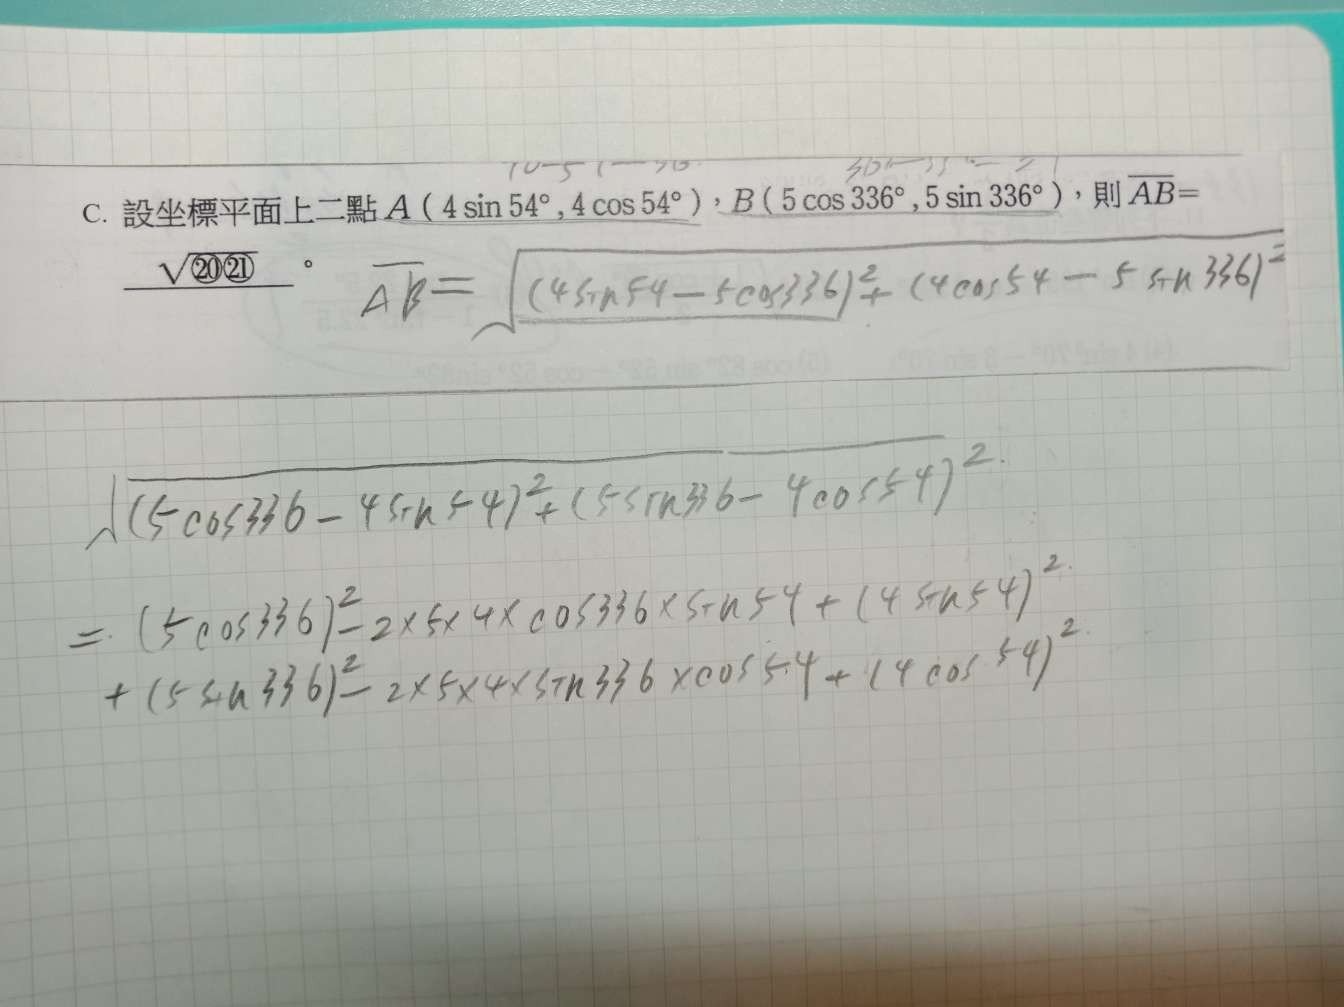 C. 設坐標平面上二點 A ( 4 sin 54° , 4 cos 54° ) , B ( 5 cos 336° , 5 sin 336° ) , 則 \overline{AB} =
√⑳㉑ 。 \overline{AB} = √(4sin54 - 5cos336)² + (4cos54 - 5sin336)²
√(5cos336 - 4sin54)² + (5sin336 - 4cos54)²
= (5cos336)² - 2×5×4×cos336×sin54 + (4sin54)²
+ (5sin336)² - 2×5×4×sin336×cos54 + (4cos54)²